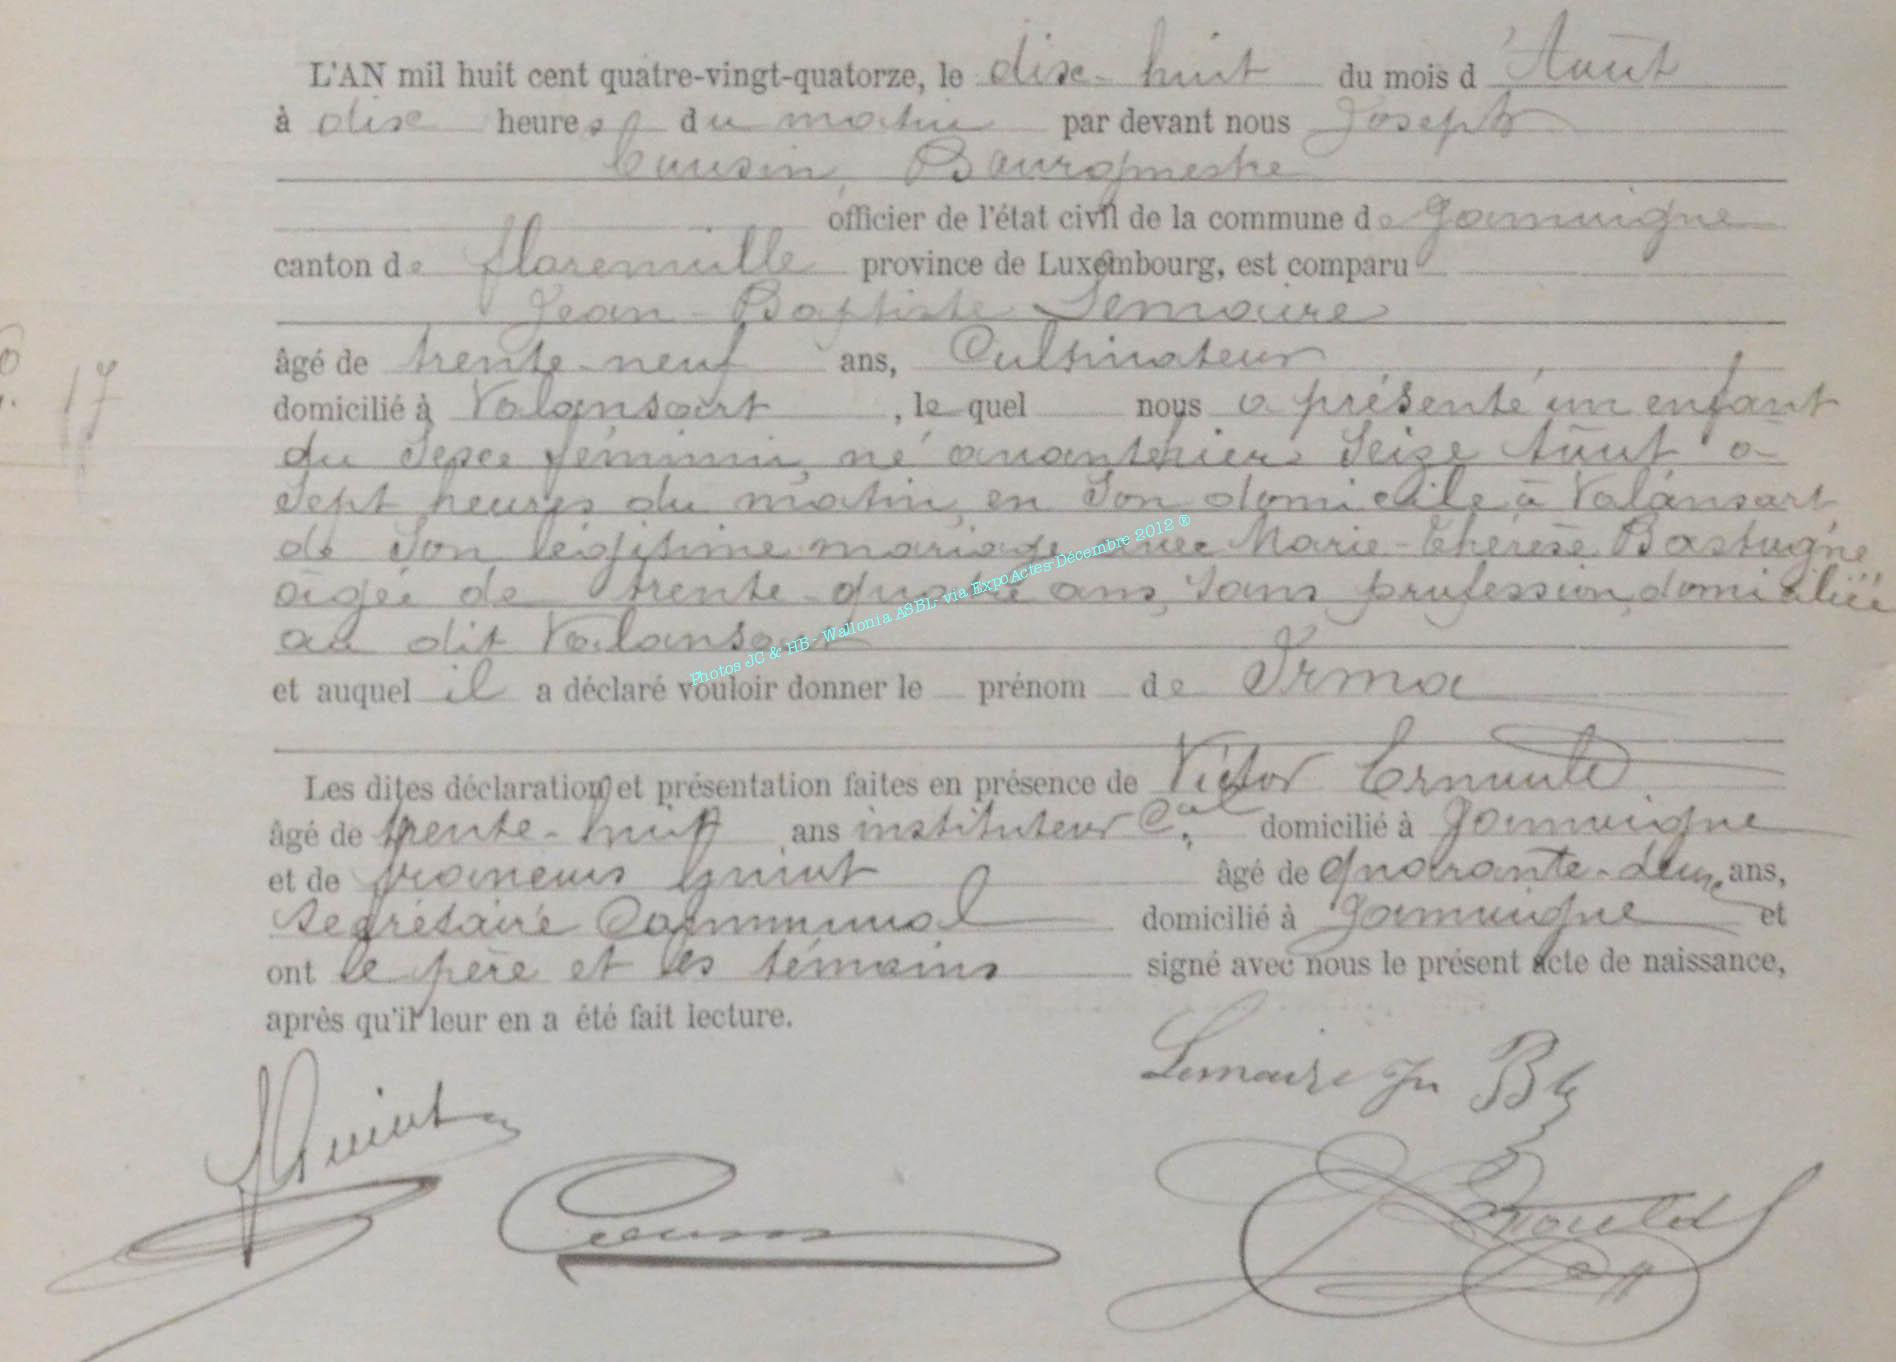 L'AN mil huit cent quatre-vingt-quatorze, le dix-huit du mois d'Août
à dix heures du matin par devant nous Joseph
Cousin, Bourgmestre
officier de l'état civil de la commune de Jamoigne
canton de Florenville province de Luxembourg, est comparu
Jean-Baptiste Lemaire
âgé de trente-neuf ans, Cultivateur
17
domicilié à Valansart, le quel nous a présenté un enfant
du Sexe féminin, né avanthier Seize Août à
Sept heures du matin, en Son domicile à Valansart
de Son légitime mariage avec Marie-Thérèse Bastogne
âgée de trente-quatre ans, Sans profession, domiciliée
au dit Valansart
et auquel il a déclaré vouloir donner le prénom de Irma
Les dites déclaration et présentation faites en présence de Victor
âgé de trente-huit ans instituteur Cal domicilié à Jamoigne
et de françois Guiot âgé de quarante-deux ans,
Secrétaire Communal domicilié à Jamoigne et
ont le père et les témoins signé avec nous le présent acte de naissance,
après qu'il leur en a été fait lecture.
Lemaire Jn Bte
Guiot
Cousin
Photos JC & HB - Wallonia ASBL - via ExpoActes-Décembre 2012 ®